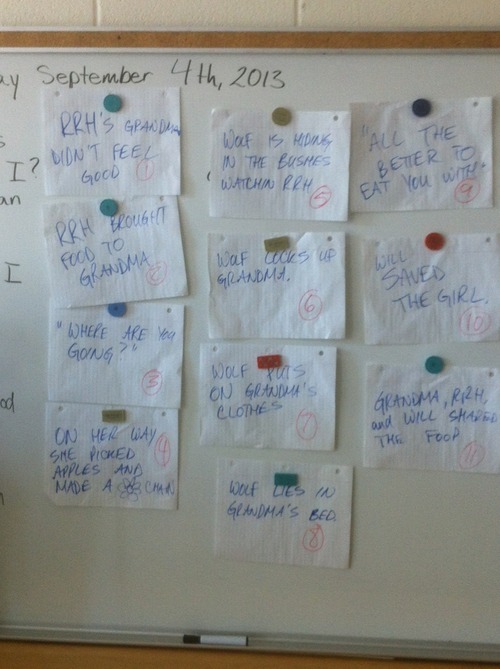 ay September 4th, 2013
I?
an
I
od
RRH'S GRANDMA
DIDN'T FEEL
GOOD 1
RRH BROUGHT
FOOD TO
GRANDMA 2
"WHERE ARE YOU
GOING?"
3
ON HER WAY
SHE PICKED 4
APPLES AND
MADE A CHAIN
WOLF IS HIDING
IN THE BUSHES
WATCHIN RRH. 5
WOLF LOCKS UP
GRANDMA.
6
WOLF PUTS
ON GRANDMA'S
CLOTHES 7
WOLF LIES IN
GRANDMA'S BED.
8
"ALL THE
BETTER TO
EAT YOU WITH."
9
WILL
SAVED
THE GIRL.
10
GRANDMA, RRH,
and WILL SHARED
THE FOOD 11